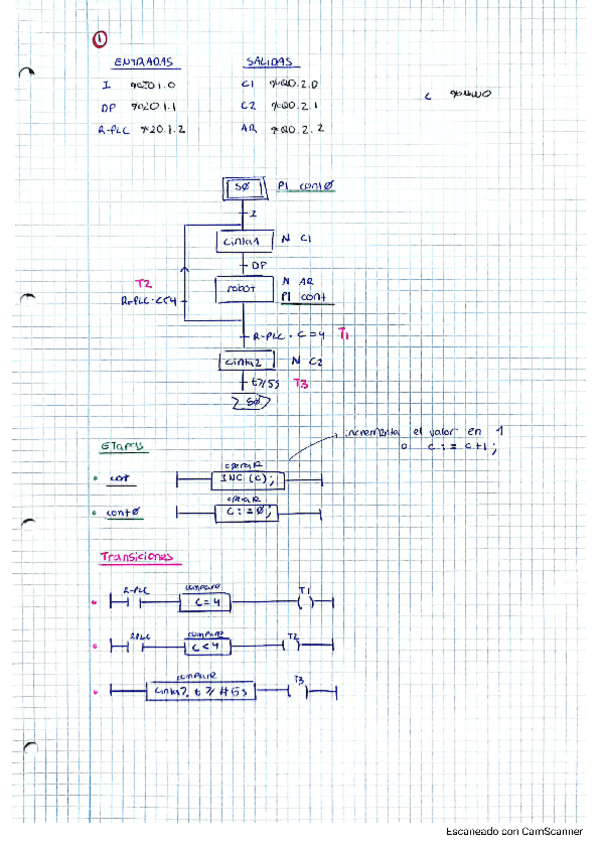 1
ENTRADAS
SALIDAS
I %I01.0
C1 %Q0.2.0
C %MW0
DP %I0.1.1
C2 %Q0.2.1
R-PLC %I0.1.2
AR %Q0.2.2
S0 P1 cont0
I
cinta1 N C1
DP
T2
robot N AR
R-PLC·C<4
P1 cont
R-PLC · C=4 T1
cinta2 N C2
t>/5s T3
S0
incrementa el valor en 1
Etapas
o C:=C+1;
operate
cont INC (C);
operate
cont0 C:=0;
Transiciones
R-PLC compare T1
C=4
RPLC compare T2
C<4
compare T3
cinta2.t>/#5s
Escaneado con CamScanner